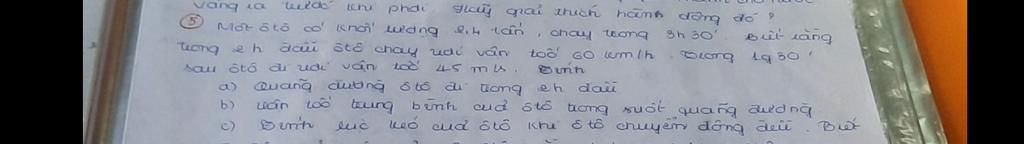 vàng ra trước khi phơi giấy giải thích hành động đó ?
⑤ Một ôtô có khối lượng 2,4 tấn, chạy trong 3h30'. Biết rằng
trong 2h đầu ôtô chạy với vận tốc 60 km/h. Trong 1g30'
sau ôtô đi với vận tốc 45 m/s. Tính
a) Quãng đường ôtô đi trong 2h đầu
b) vận tốc trung bình của ôtô trong suốt quãng đường
c) Tính lực kéo của ôtô khi ôtô chuyển động đều. Biết